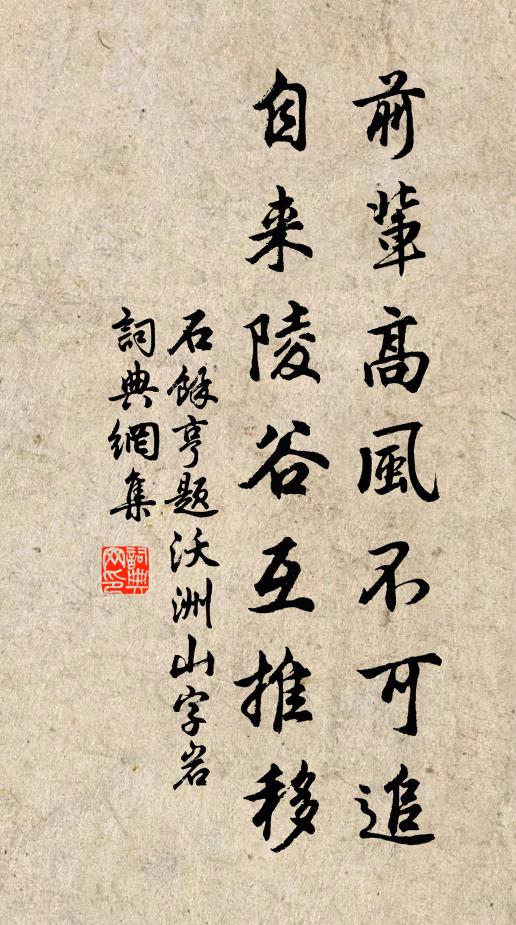 前輩高風不可追
自来陵谷互推移
石餘亨題沃洲山字岩
詞典網集
詞典網印